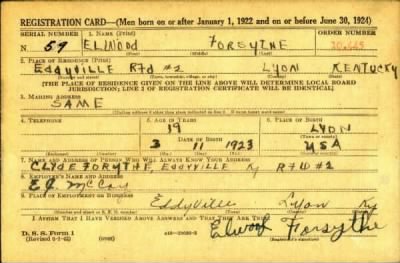 REGISTRATION CARD—(Men born on or after January 1, 1922 and on or before June 30, 1924)
SERIAL NUMBER 1. NAME (Print) ORDER NUMBER
N 57 ELWOOD FORSYTHE
(First) (Middle) (Last)
2. PLACE OF RESIDENCE (Print)
EDDYVILLE #2 LYON KENTUCKY
(Number and street) (Town, township, village, or city) (County) (State)
[THE PLACE OF RESIDENCE GIVEN ON THE LINE ABOVE WILL DETERMINE LOCAL BOARD
JURISDICTION; LINE 2 OF REGISTRATION CERTIFICATE WILL BE IDENTICAL]
3. MAILING ADDRESS
SAME
4. TELEPHONE 5. AGE IN YEARS 6. PLACE OF BIRTH
19 LYON
DATE OF BIRTH
3 11 1923 USA
7. NAME AND ADDRESS OF PERSON WHO WILL ALWAYS KNOW YOUR ADDRESS
CLYDE FORYTHE, EDDYVILLE Ky #2
8. EMPLOYER'S NAME AND ADDRESS
McCoy
9. PLACE OF EMPLOYMENT OR BUSINESS
Eddyville Lyon Ky
I AFFIRM THAT I HAVE VERIFIED ABOVE ANSWERS AND THAT THEY ARE TRUE.
D. S. S. Form 1
Elwood Forsythe
(Registrant's signature)